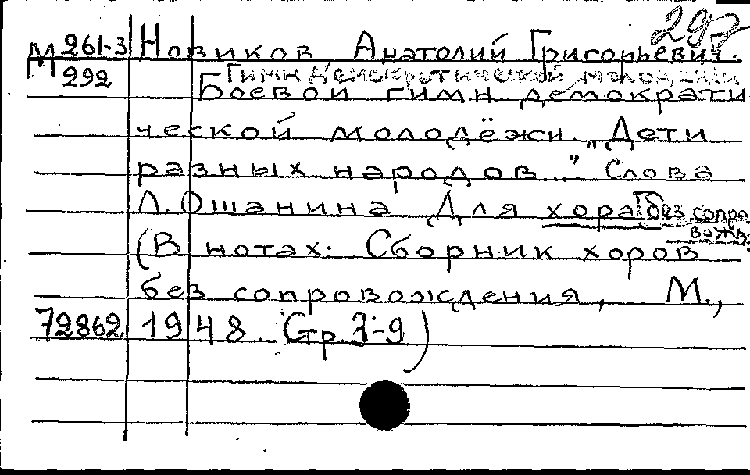 297
М 261-3 Новиков Анатолий Григорьевич.
292 Гимн демократической молодежи
Боевой гимн демократи
ческой молодёжи. „Дети
разных народов..." Слова
Л. Ошанина Для хора [без сопро
вожд.
(В нотах: Сборник хоров
без сопровождения, М.,
72862 1948. Стр. 7-9)